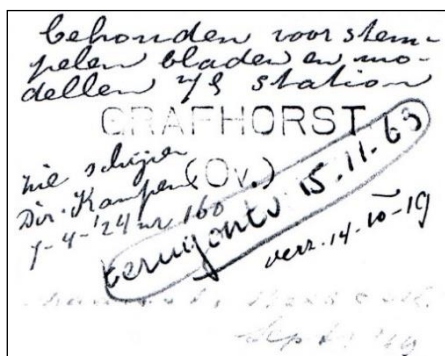 behouden voor stem-
pelen bladen en mo-
dellen station
GRAFHORST
(Ov.)
zie schrijven
Dir. Kampen
7-4-'24 nr 160
terugontv 15.11.63
verz. 14-10-19